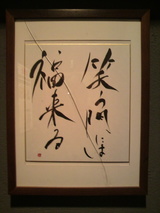 笑う門には
福来る